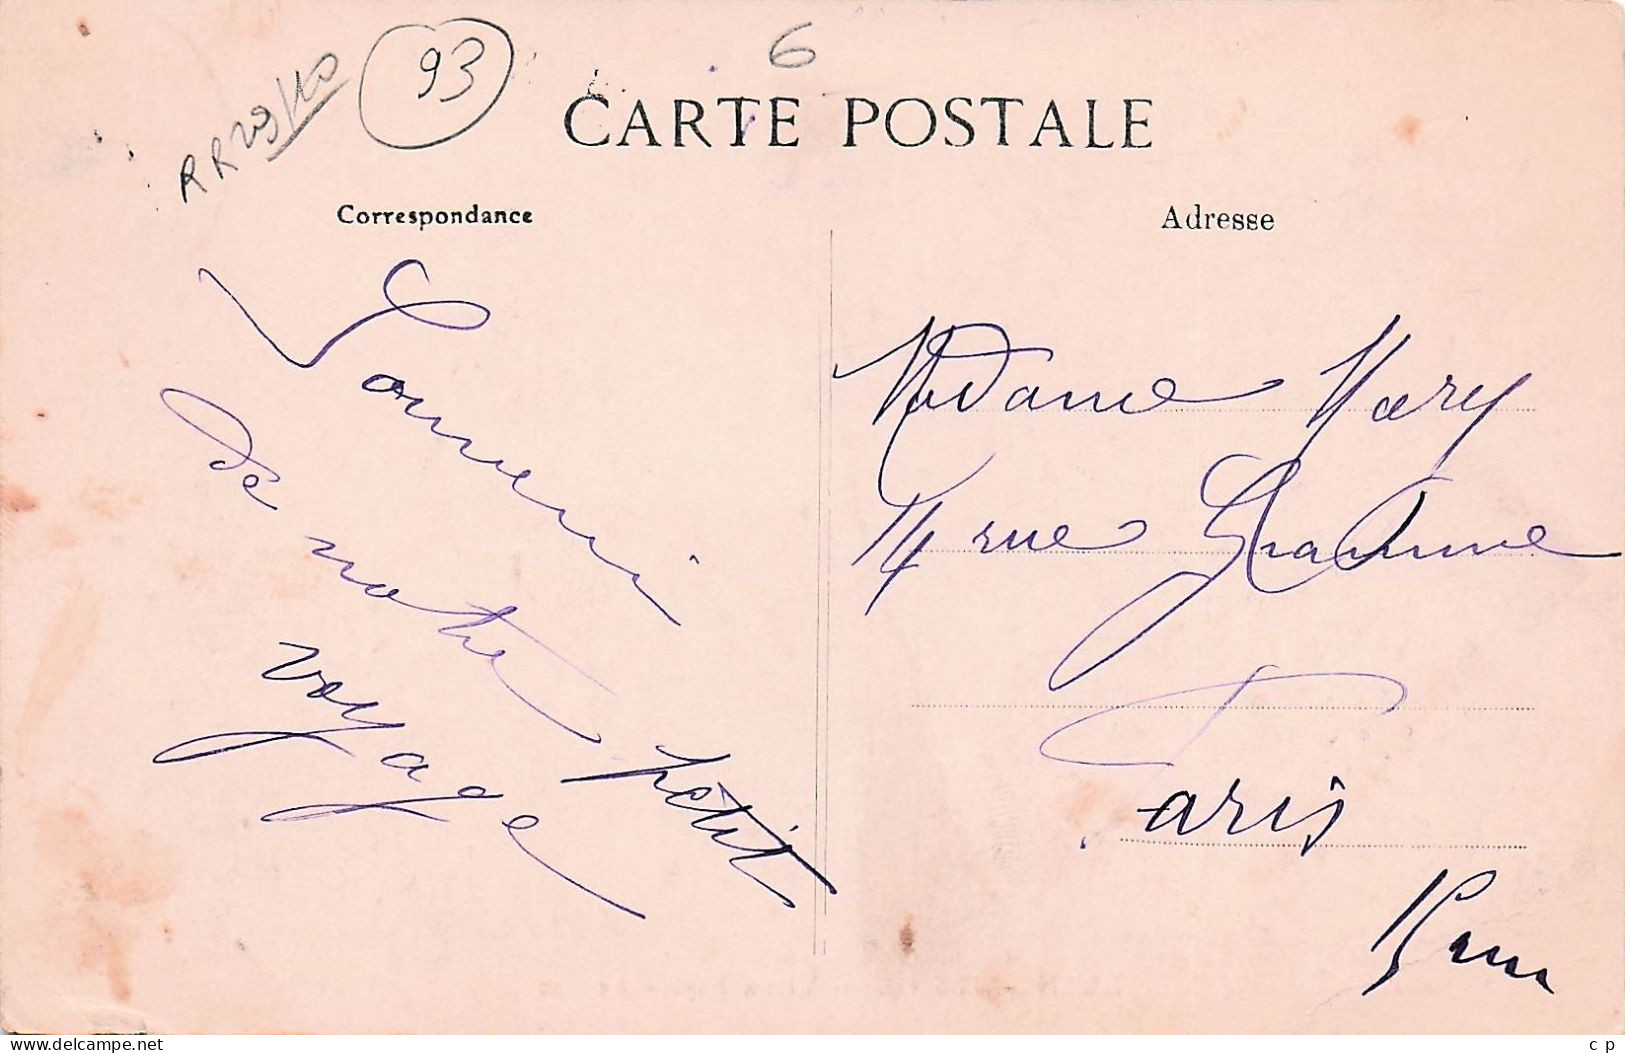 RR29/10
93
6
CARTE POSTALE
Correspondance
Adresse
Souvenir
de notre petit
voyage
Madame Mary
14 rue Gramme
Paris
15 eme
www.delcampe.net
c p